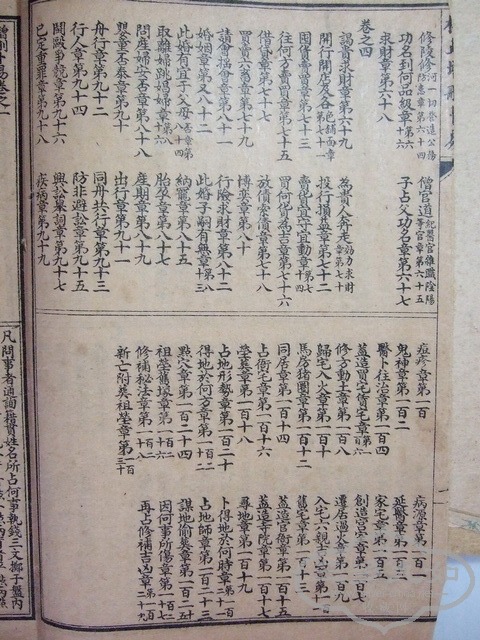 修陵修河防患章第六十四
功名到何品級章第六十六
求財章第六十八
卷之四
謁貴求財章第六十九
開行開店及各色鋪面章第七十一
囤貨賣貨章第七十三
往何方賣貨章第七十五
借貸章第七十七
買賣六畜章第七十九
請會搖會章第八十一
婚姻章第又八十二
此婚有宜于父母否章第八十四
取離婦跳媽婦章第八十六
問產婦安否章第八十八
嬰童否泰章第九十
舟行章第九十二
行人章第九十四
鬬毆爭競章第九十六
已定重罪章第九十八
僧官道紀醫官雜職陰陽等官章第六十五
子占父功名章第六十七
為貴人奔走効力求財章第七十
投行損益章第七十二
賣貨宜守宜動章第七十四
買何貨為吉章第七十六
放債索債章第七十八
博奕章第八十
行險求財章第八十二
此婚子嗣有無章第八十三
納寵章第八十五
胎孕章第八十七
產期章第八十九
出行章第九十一
同舟共行章第九十三
防非避訟章第九十五
興訟章第九十七
疾病章第九十九
痘疹章第一百
鬼神章第一百二
醫卜往治章第一百四
蓋造買宅賃宅章第一百六
修方動土章第一百八
歸宅入火章第一百十
馬房猪圈章第一百十二
同居章第一百十四
占衙宅章第一百十六
塋葬章第一百十八
占地形勢章第一百二十
得地於何方章第一百二十二
點穴章第一百二十四
祖塋舊塚章第一百二十六
修補秘法章第一百二十八
新亡附葬祖塋章第一百三十
病源章第一百一
延醫章第一百三
家宅章第一百五
創造宮室章第一百七
遷居過火章第一百九
舊宅章第一百十三
蓋造宮衙章第一百十五
蓋造寺院章第一百十七
尋地章第一百十九
卜得地於何時章第一百二十一
占地師章第一百二十三
謀地偷葬章第一百二十五
因何事所傷章第一百二十七
再占修補吉凶章第一百二十九
凡問事者通詢鄉貫姓名所占何事執錢三文擲于盤內